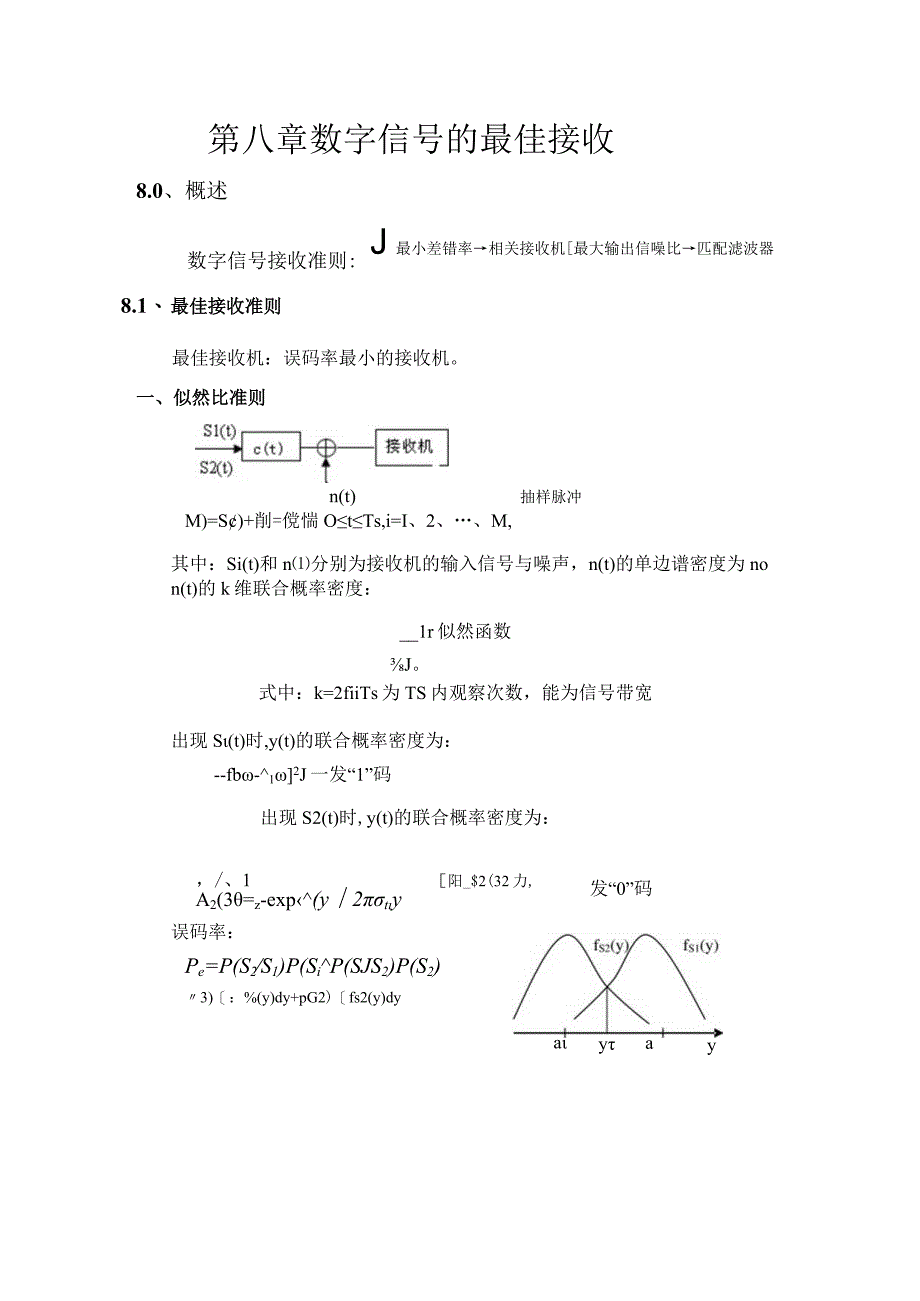 第八章数字信号的最佳接收
8.0、概述
数字信号接收准则: J 最小差错率→相关接收机[最大输出信噪比→匹配滤波器
8.1、最佳接收准则
最佳接收机：误码率最小的接收机。
一、似然比准则
S1(t)
S2(t)
c(t)
接收机
n(t)
抽样脉冲
M)=S¢)+削=傥惴 O≤t≤Ts,i=I、2、…、M,
其中：Si(t)和 n⑴分别为接收机的输入信号与噪声，n(t)的单边谱密度为 no
n(t)的 k 维联合概率密度：
__1r 似然函数
⅜J。
式中：k=2fiiTs 为 TS 内观察次数，能为信号带宽
出现 Sι(t)时,y(t)的联合概率密度为：
--fbω-^1ω]2J 一发“1”码
出现 S2(t)时, y(t)的联合概率密度为：
，/、1 [阳_$2(32 力,
发“0”码
A2(3θ=z-exp‹^(y｜2πσtιy
误码率：
Pe=P(S2/S1)P(Si^P(SJS2)P(S2)
〃3)〔：%(y)dy+pG2)〔fs2(y)dy
fS2(y)
fS1(y)
aι
yτ
a
y